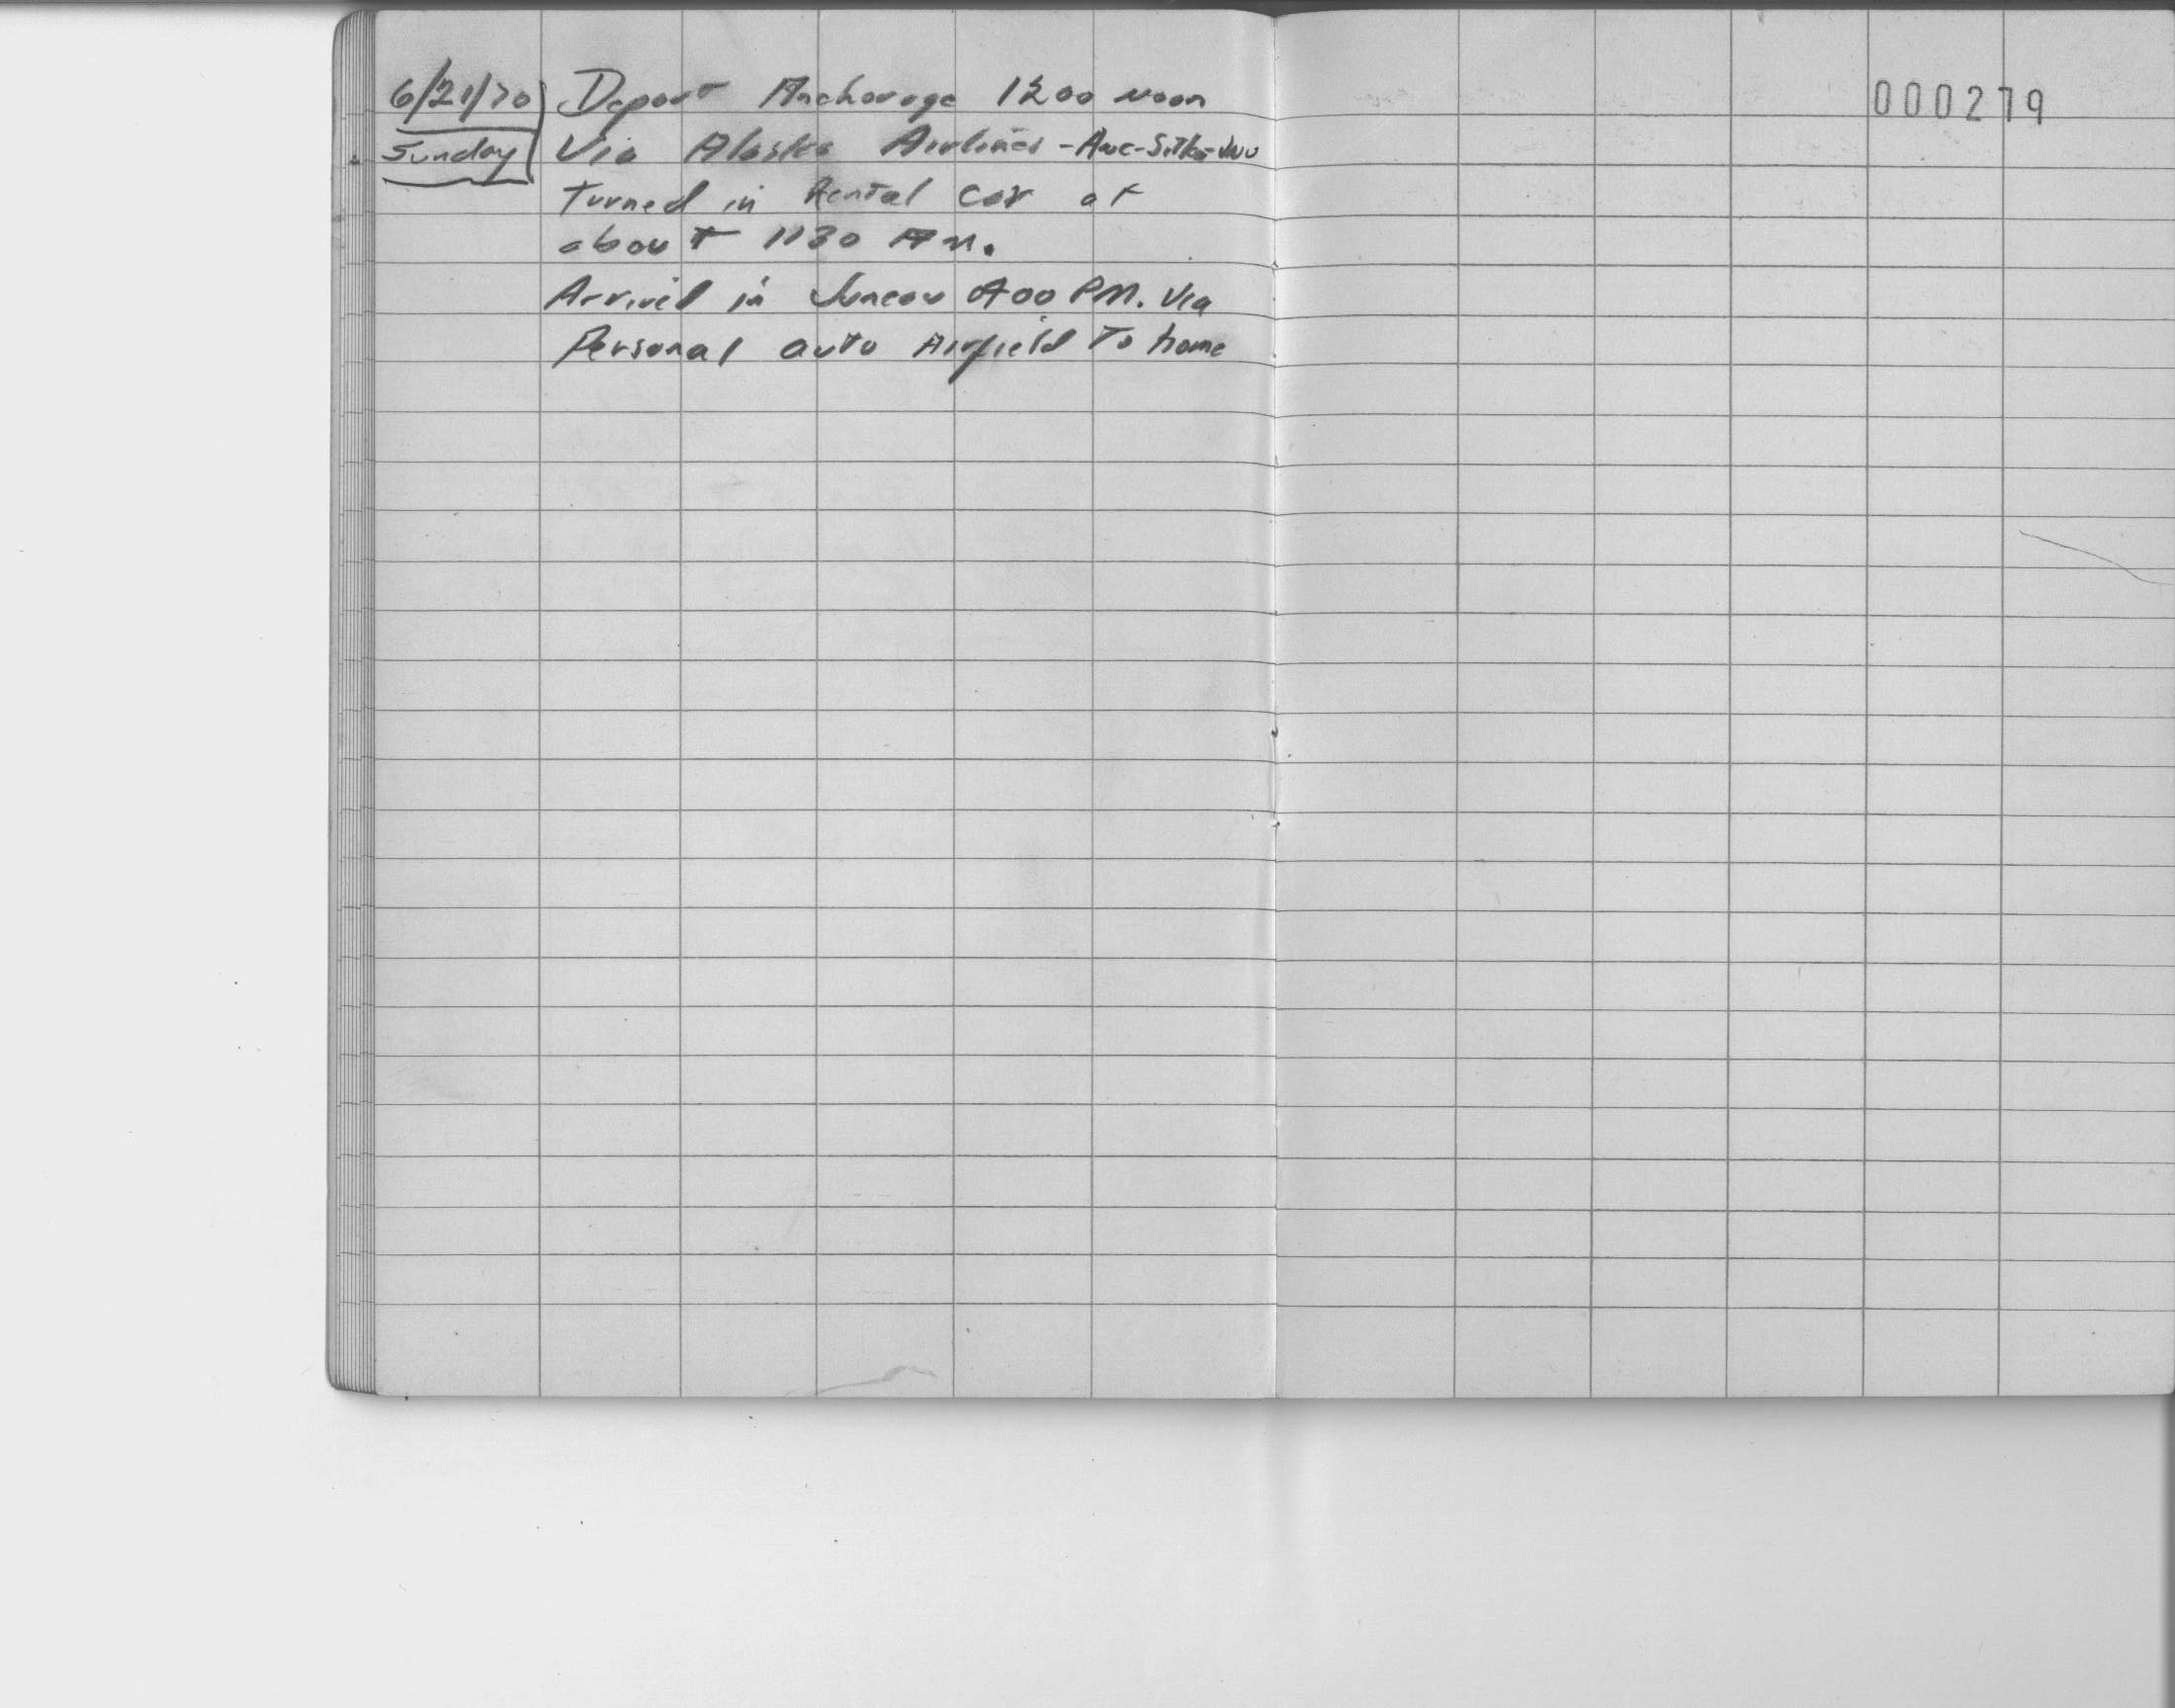 6/21/70 Depart Anchorage 1200 noon
Sunday Via Alaska Airlines - Anc-Sitka-Jnu
Turned in Rental Car at
about 1130 AM.
Arrived in Juneau 400 PM. Via
Personal auto Airfield To home
000279